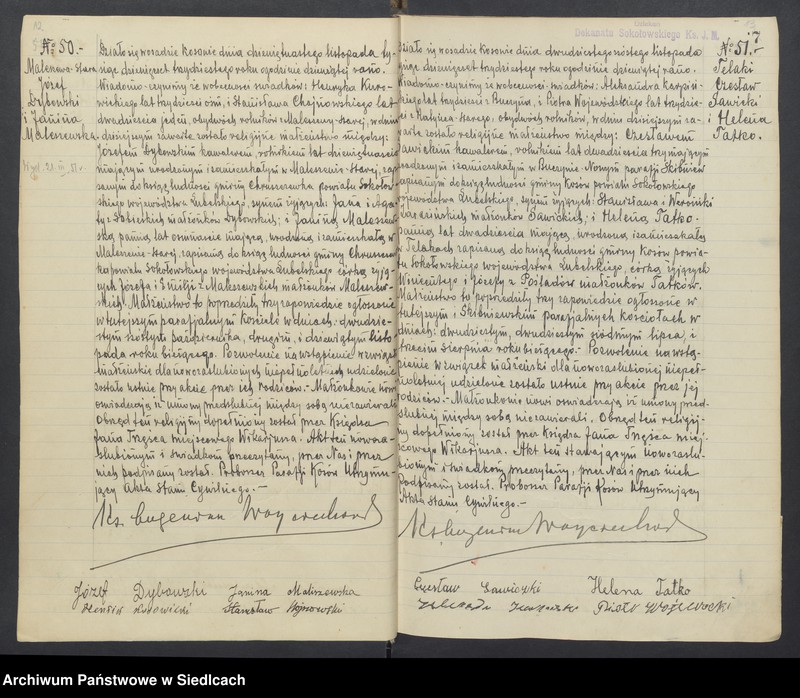 12
№ 50.-
Malenowo-Stara
Józef
Dybowski
i Janina
Maleszewska
Działo się w osadzie Kosowie dnia dziewiętnastego listopada ty-
siąc dziewięćset trzydziestego roku o godzinie dziewiątej rano.
Wiadomo czynimy że w obecności świadków: Henryka
lat trzydzieści ośm, i Stanisława Chojnowskiego lat
dwadzieścia jeden, obydwóch rolników z w dniu
dzisiejszym zawarte zostało religijne małżeństwo między:
Józefem Dybowskim kawalerem, rolnikiem lat dziewiętnaście
mającym urodzonym i zamieszkałym w Starej, zapi-
sanym do ksiąg ludności gminy Chruszczewka powiatu Sokołow-
skiego województwa Lubelskiego, synem żyjących Jana i Aga-
ty z małżonków Dybowskich; i Janiną Malesze-
ską panną lat ośmnaście mającą, urodzoną i zamieszkałą w
Starej zapisaną do ksiąg ludności gminy Chruszczew-
ka powiatu Sokołowskiego województwa Lubelskiego córką żyją-
cych Józefa i Emilji z Maleszewskich małżonków Maleszew-
skich. Małżeństwo to poprzedziły trzy zapowiedzie ogłoszone
w tutejszym parafjalnym Kościele w dniach: dwudzie-
stym szóstym października, drugim, i dziewiątym listo-
pada roku bieżącego. Pozwolenie na wstąpienie w związek
małżeński dla nowozaślubionych niepełnoletnich udzielone
zostało ustnie przy akcie przez ich rodziców.- Małżonkowie nowi
oświadczają iż umowy przedślubnej między sobą nie zawierali
Obrzęd ten religijny dopełniony został przez Księdza
Jana Tręścia miejscowego Wikarjusza. Akt ten nowoza-
ślubionym i świadkom przeczytany, przez Nas i przez
nich podpisany został. Proboszcz Parafji Kosów Utrzymu-
jący Akta Stanu Cywilnego.-
Ks. Eugenjusz
Józef Dybowski Janina Maliszewska
Stanisław
Dekanatu Sokołowskiego
13
№ 51.-
Telaki
Czesław
Sawicki
i Helena
Tatko.
Działo się w osadzie Kosowie dnia dwudziestego szóstego listopada
tysiąc dziewięćset trzydziestego roku o godzinie dziewiątej rano.
Wiadomo czynimy że w obecności świadków: Aleksandra Karpiń-
skiego lat trzydzieści z Buczyna, i Piotra Wojewódzkiego lat trzydzie-
ści z obydwóch rolników, w dniu dzisiejszym za-
warte zostało religijne małżeństwo między: Czesławem
Sawickim kawalerem, rolnikiem lat dwadzieścia trzy mającym
urodzonym i zamieszkałym w Buczynie-Nowym parafji Skibniew
zapisanym do ksiąg ludności gminy Kosów powiatu Sokołowskiego
województwa Lubelskiego, synem żyjących: Stanisława i Weroniki
małżonków Sawickich; i Heleną Tatko-
panną lat dwadzieścia mającą, urodzoną i zamieszkałą
w Telakach zapisaną do ksiąg ludności gminy Kosów powia-
tu Sokołowskiego województwa Lubelskiego, córką żyjących
Wincentego i Józefy z małżonków Tatków.
Małżeństwo to poprzedziły trzy zapowiedzie ogłoszone w
tutejszym i Skibniewskim parafjalnych kościołach w
dniach: dwudziestym, dwudziestym siódmym lipca, i
trzecim sierpnia roku bieżącego.- Pozwolenie na wstą-
pienie w związek małżeński dla nowozaślubionej niepeł-
noletniej udzielone zostało ustnie przy akcie przez jej
rodziców.- Małżonkowie nowi oświadczają iż umowy przed-
ślubnej między sobą nie zawierali. Obrzęd ten religij-
ny dopełniony został przez Księdza Jana Tręścia miej-
scowego Wikarjusza. Akt ten stawającym nowozaślu-
bionym i świadkom przeczytany, przez Nas i przez nich
Podpisany został. Proboszcz Parafji Kosów Utrzymujący
Akta Stanu Cywilnego.-
Ks. Eugenjusz
Czesław Sawicki Helena Tatko
Piotr
Archiwum Państwowe w Siedlcach